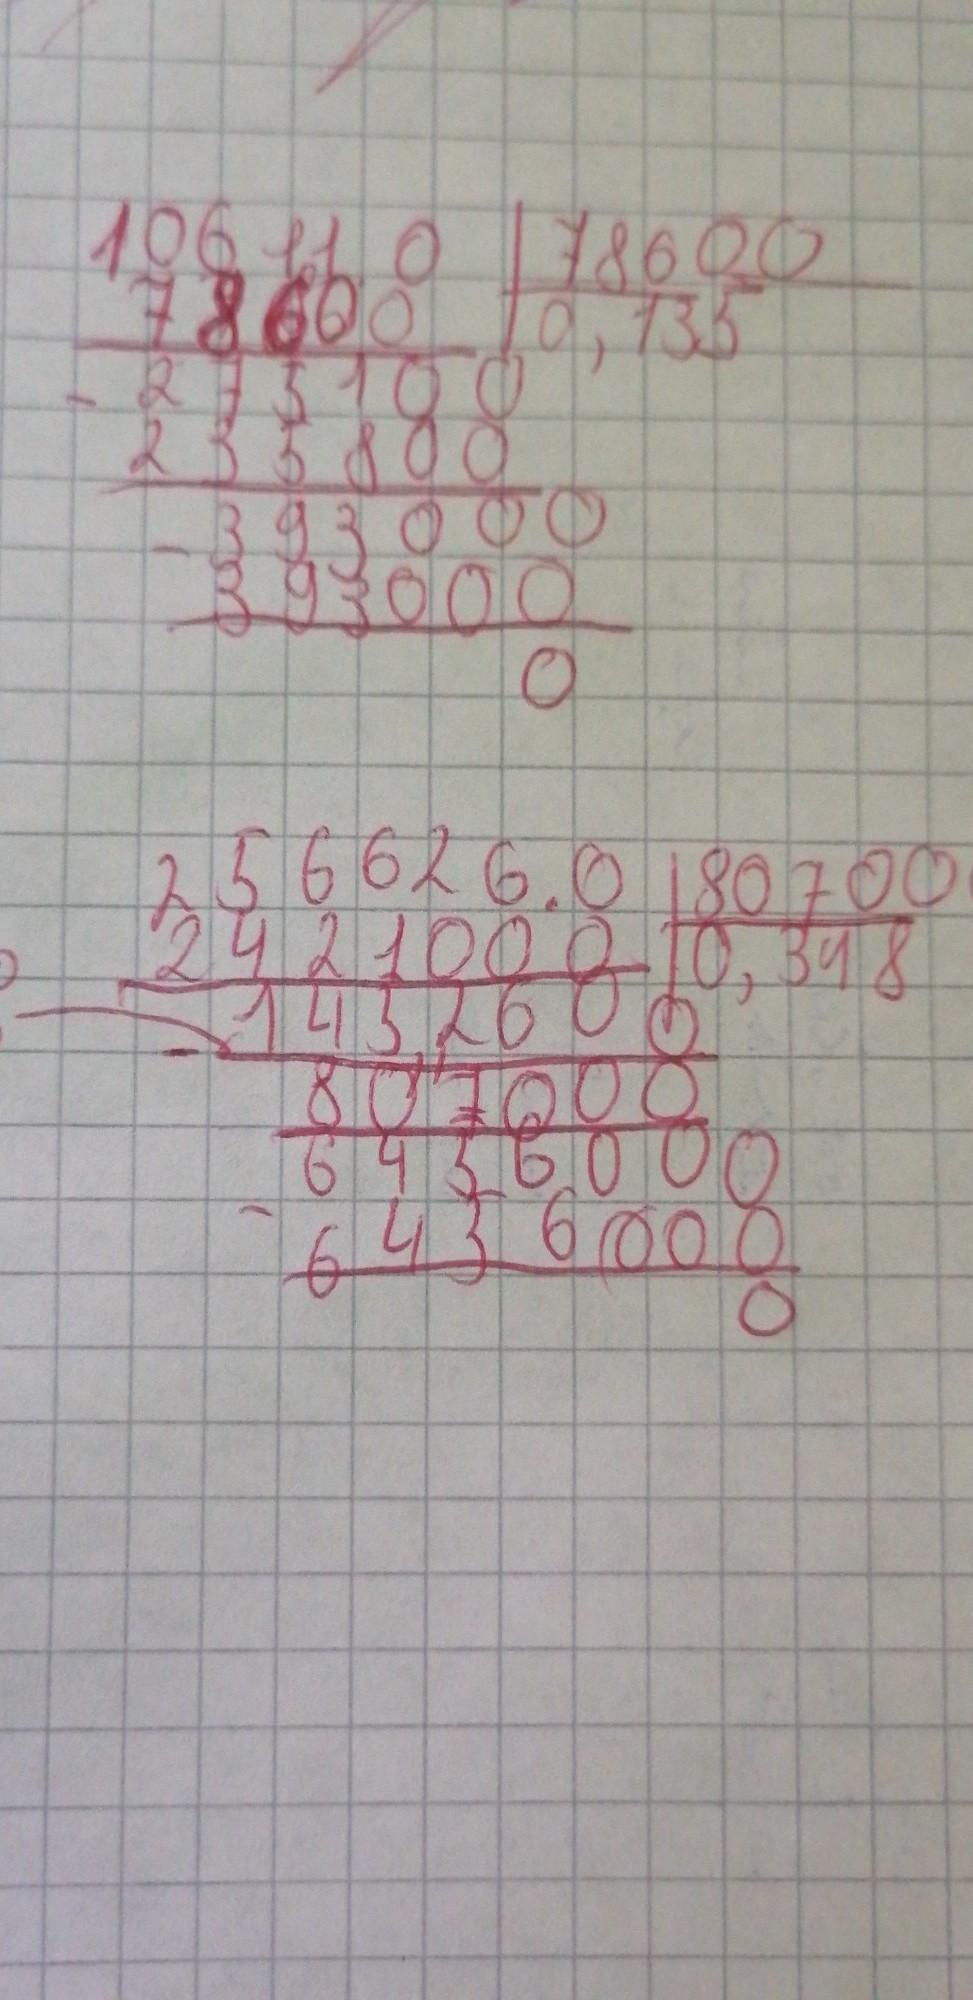 106110 | 78600
78600 | 0,135
- 273100
235800
- 393000
393000
0
256626.0 | 80700
2421000 | 0,318
- 1452600
807000
6456000
- 6456000
0